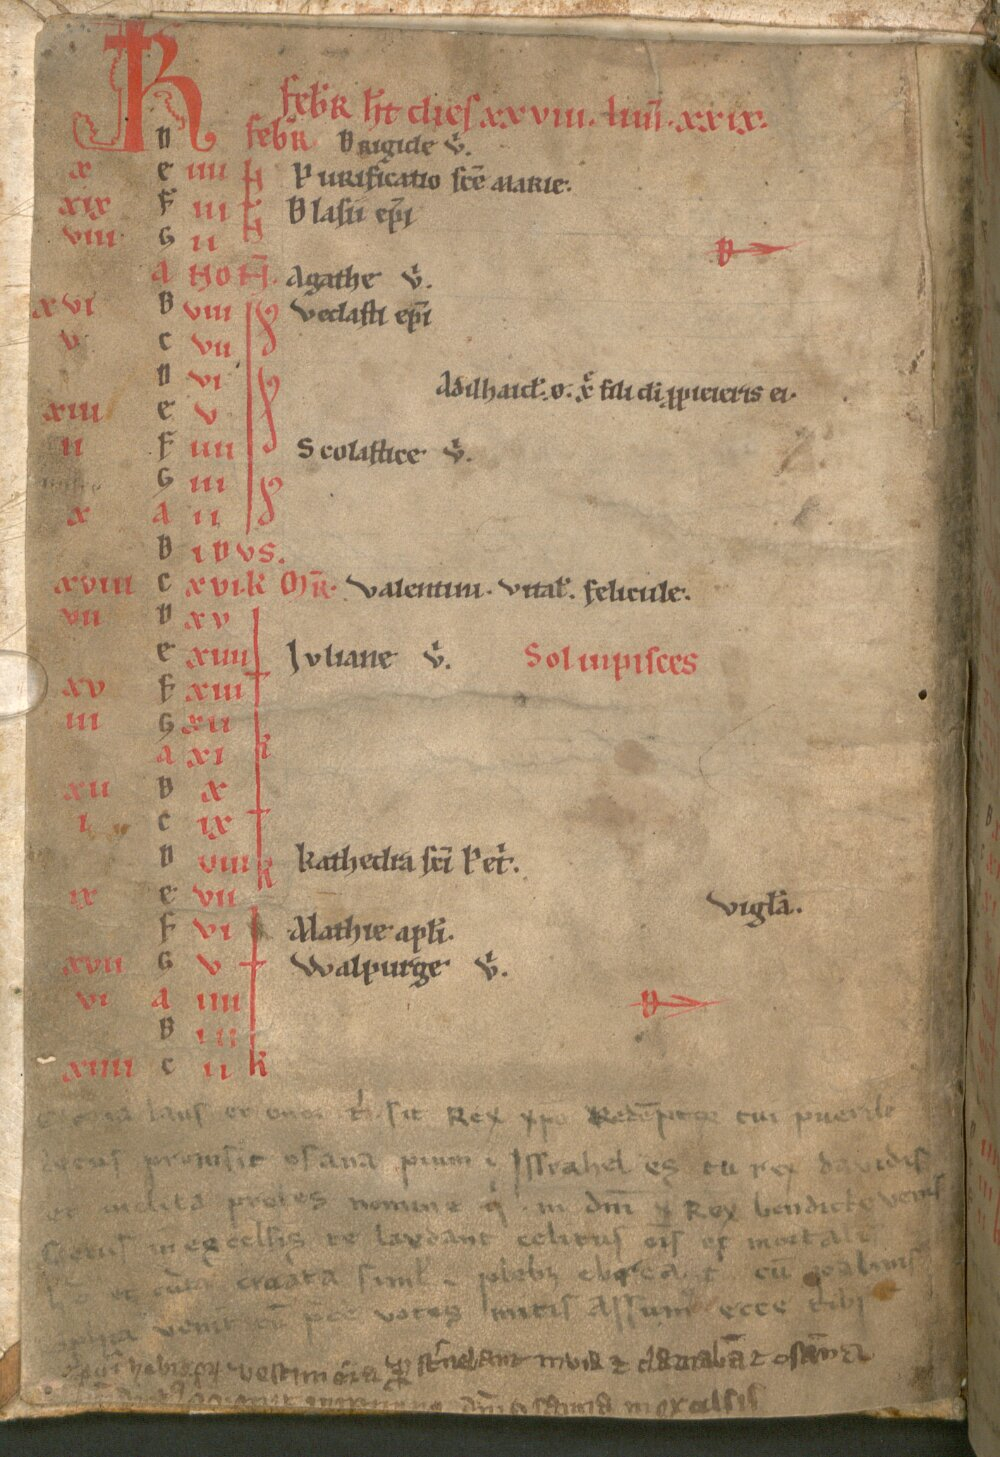 KL Febr ht dies xxviii. lun. xxix.
D febr Brigide v.
x e iiii N Purificatio sce marie.
xix F iii N Blasii epi
viii G ii N D
a NON Agathe v.
xvi B viii Vedasti epi
v c vii
D vi Adilhaid. o. x fili di ppicieris ei.
xiii e v
ii F iiii Scolastice v.
G iii
x a ii
B idvs.
xviii c xvi k mr. Valentini. Vital. felicule.
vii D xv
e xiiii Juliane v. Sol in pisces
xv F xiii
iii G xii
a xi k
xii B x
i c ix
D viii k Kathedra sci Petr.
ix e vii vigla.
F vi Mathie apli.
xvii G v Walpurge v.
vi a iiii D
B iii
xiiii c ii k
laus et sit Rex xpe Redeptor tui puerile
decus promsit osana pium i Issrahel es tu rex davidis
et inclita proles nomine q in dni Rex benidicte venis
Cetus in excelsis te laudant celitus ois et mortalis
ho et cucta creata simul plebs ebrea t cu palmis
venit cu pce votis ecce tibi
vestimenta sternebant in via z clamaba z osanna
in excelsis